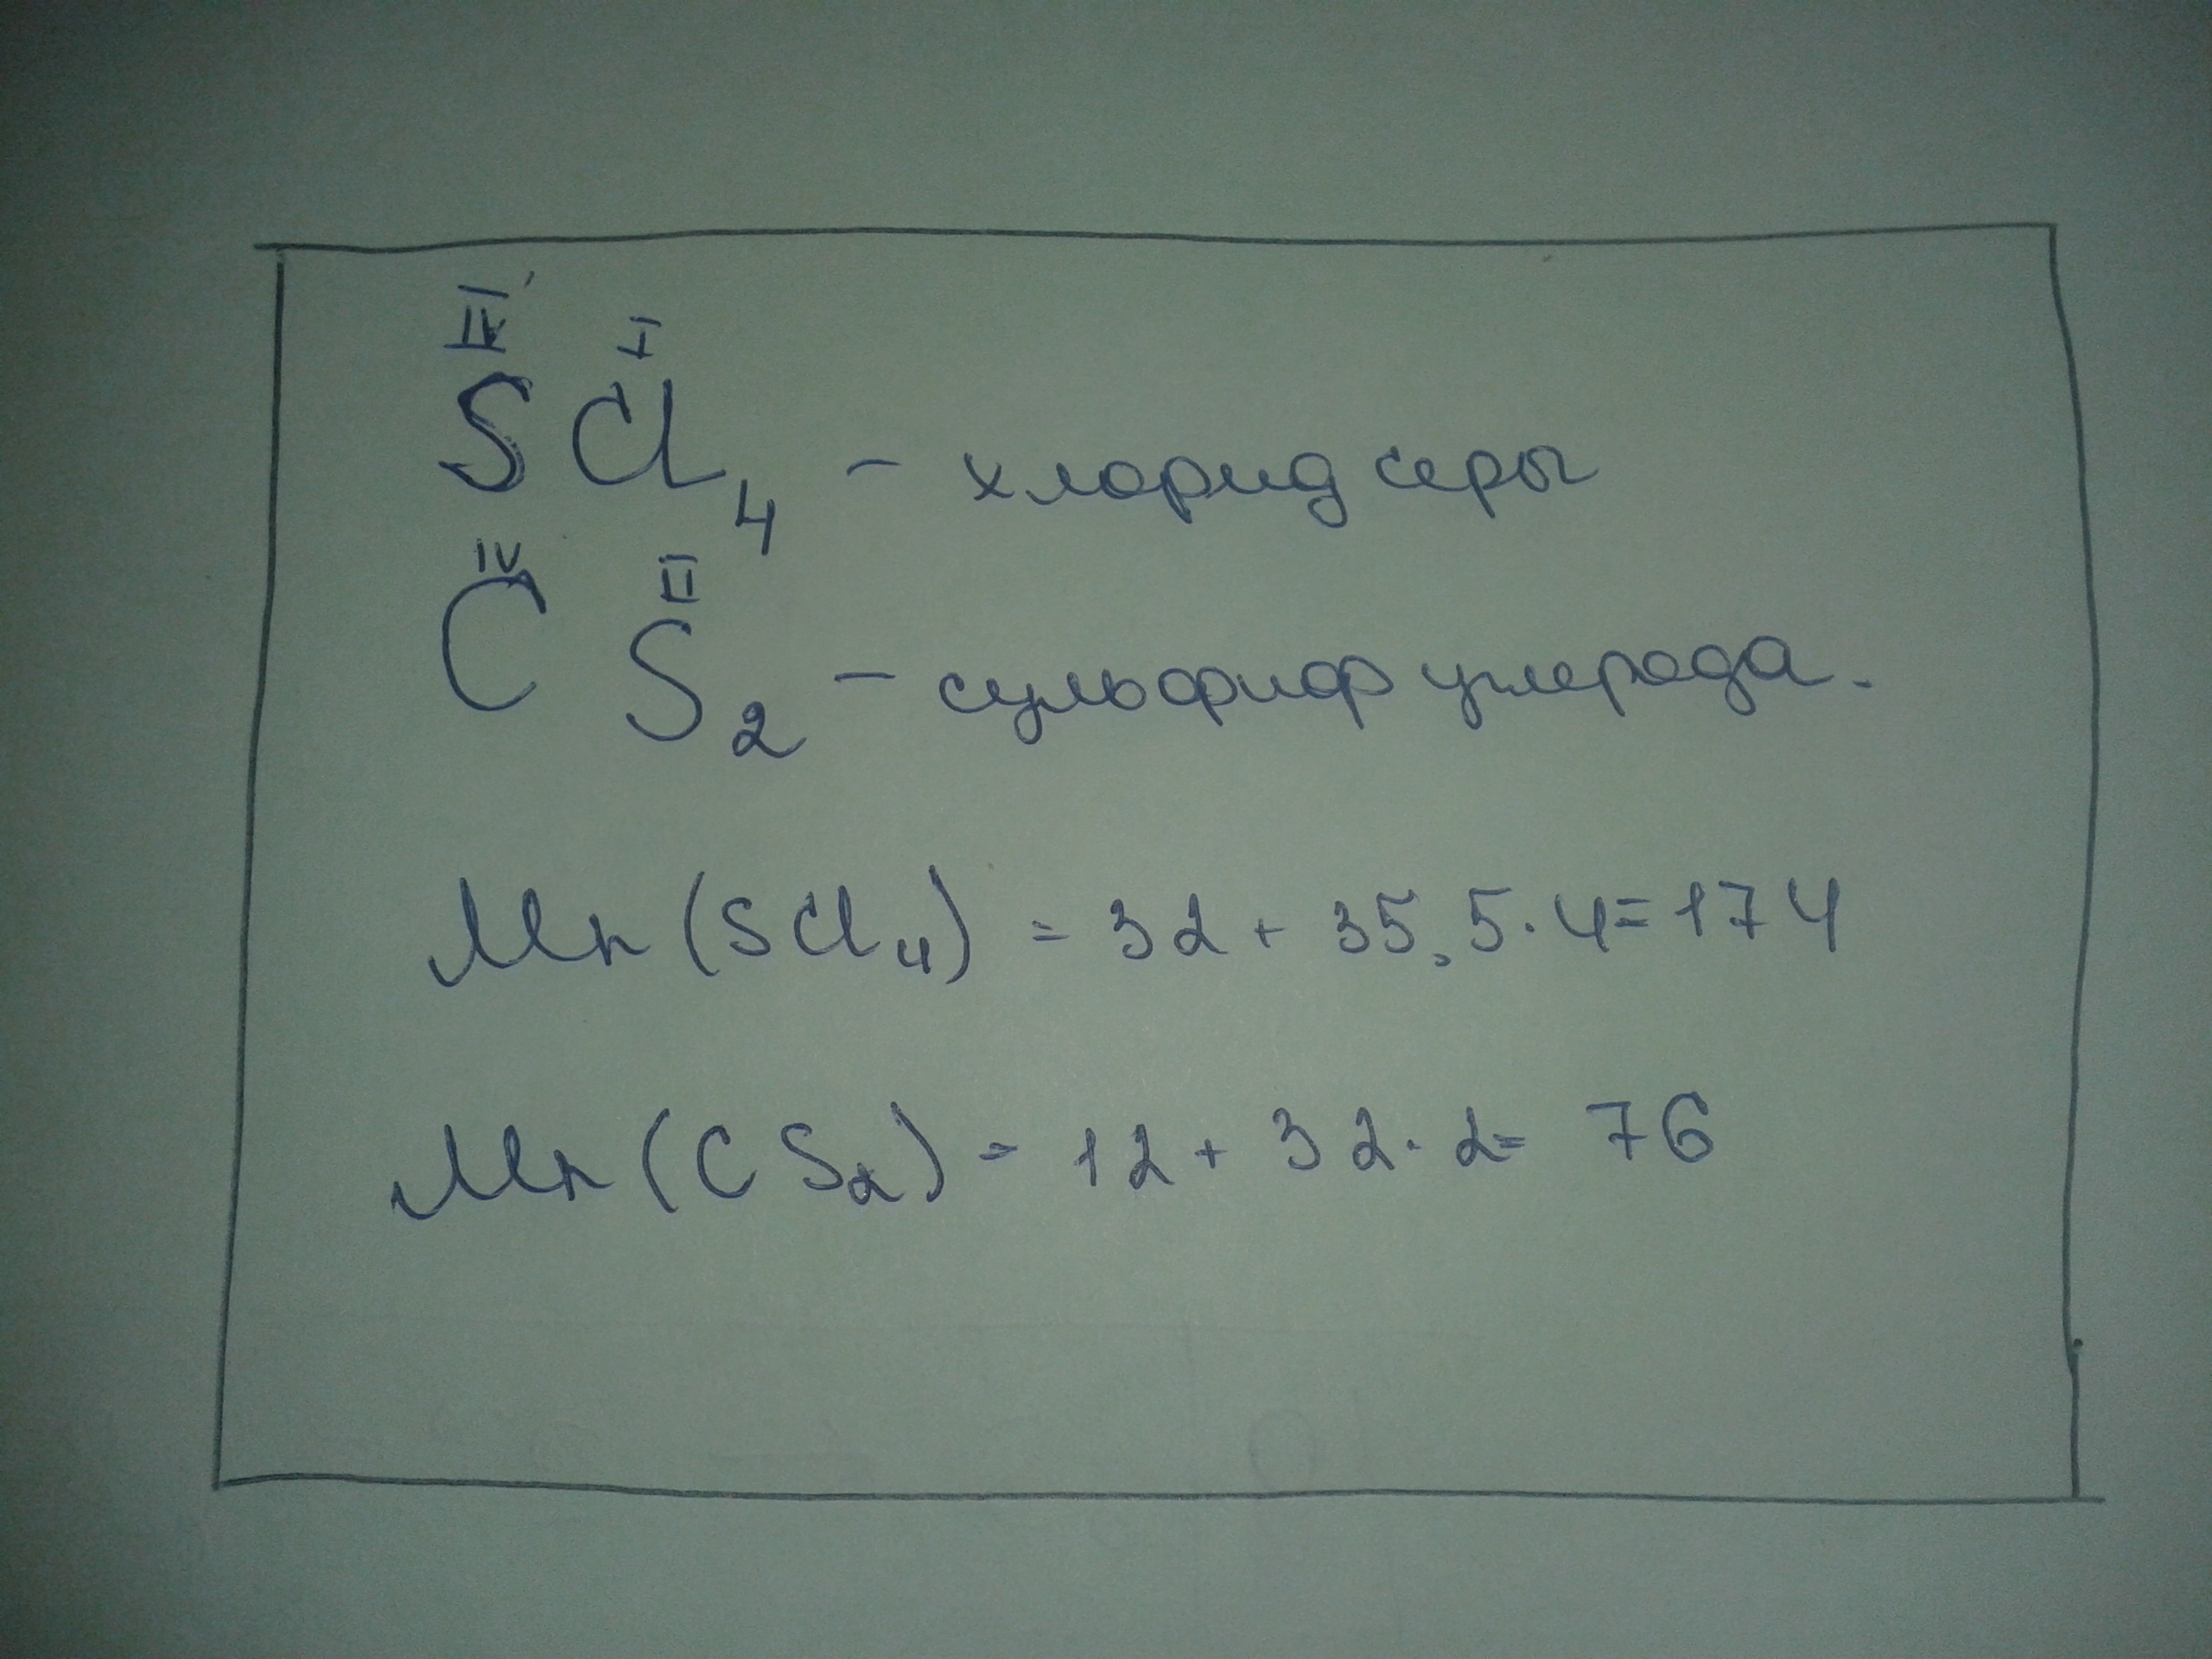 IV I
SCl4 – хлорид серы
IV II
C S2 – сульфиф углерода.
Mr (SCl4) = 32 + 35,5 · 4 = 174
Mr (CS2) = 12 + 32 · 2 = 76